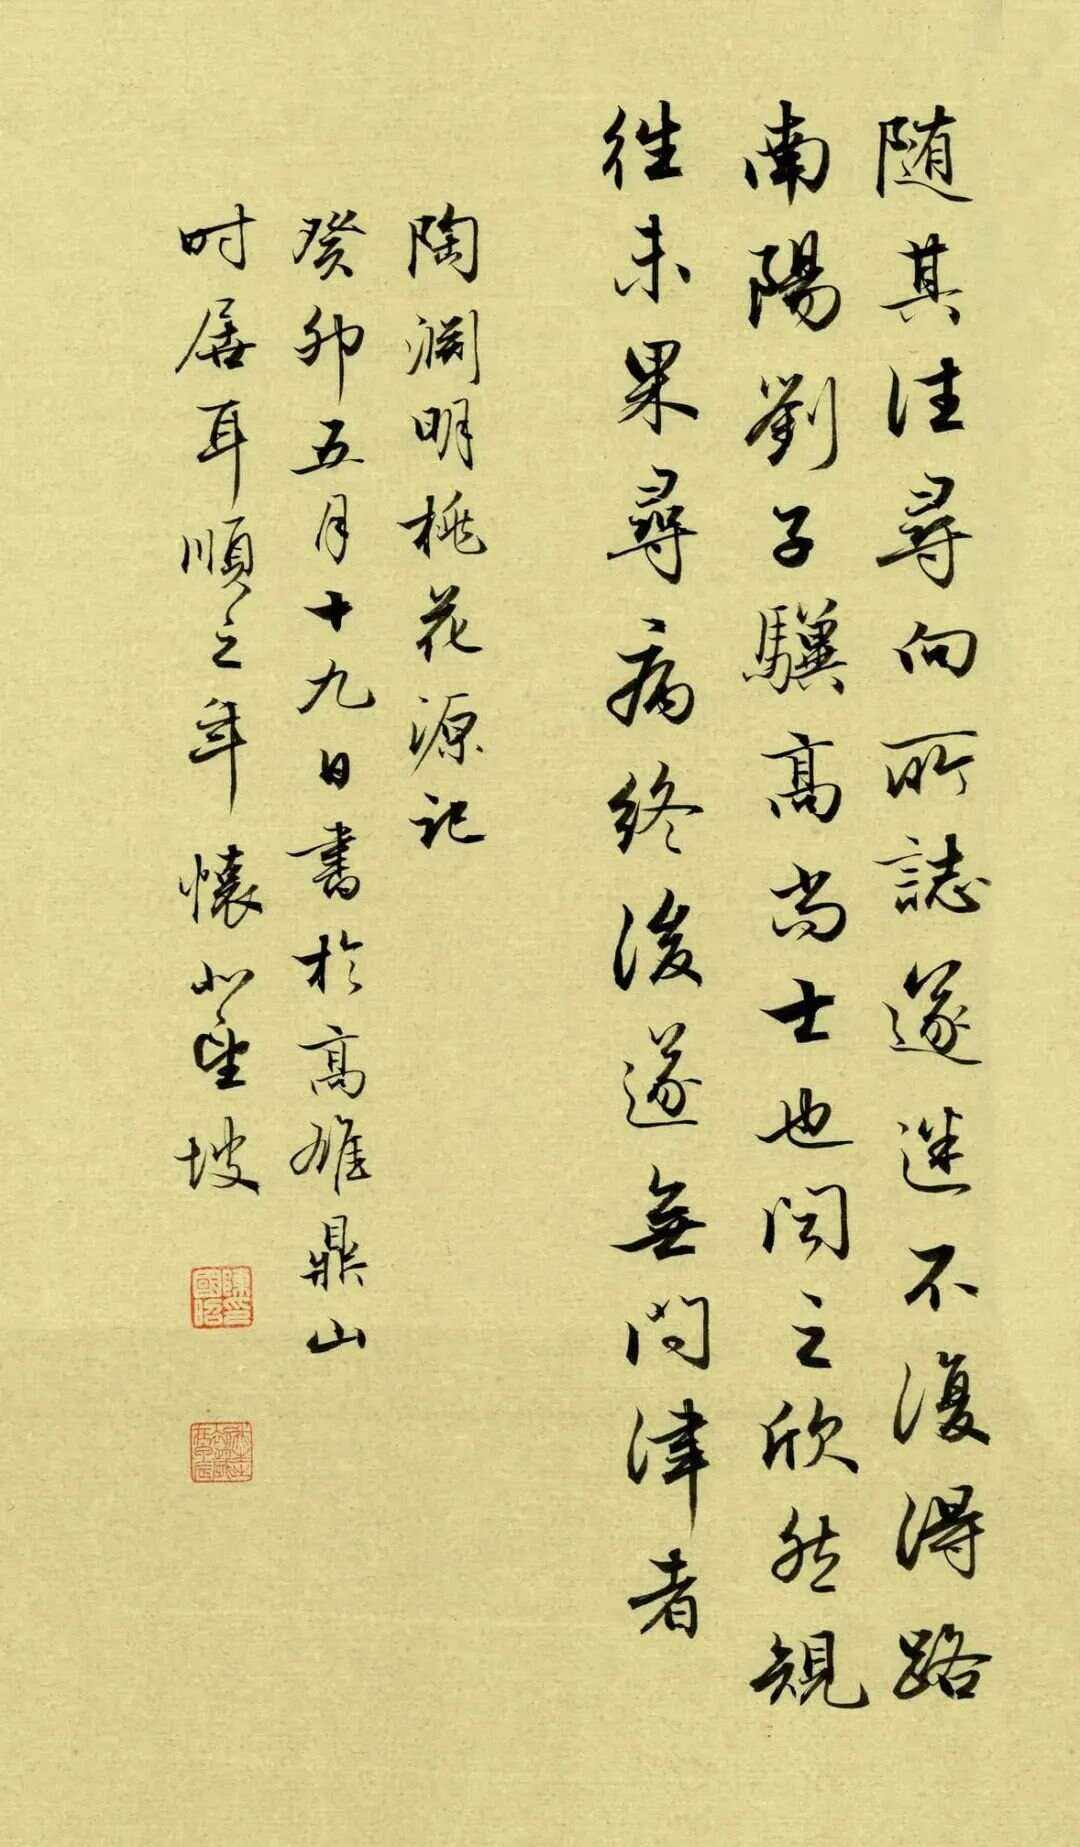 隨其往尋向所誌遂迷不復得路
南陽劉子驥高尚士也聞之欣然規
往未果尋病終後遂無問津者
陶淵明桃花源記
癸卯五月十九日書於高雄鼎山
时居耳順之年懷小坡